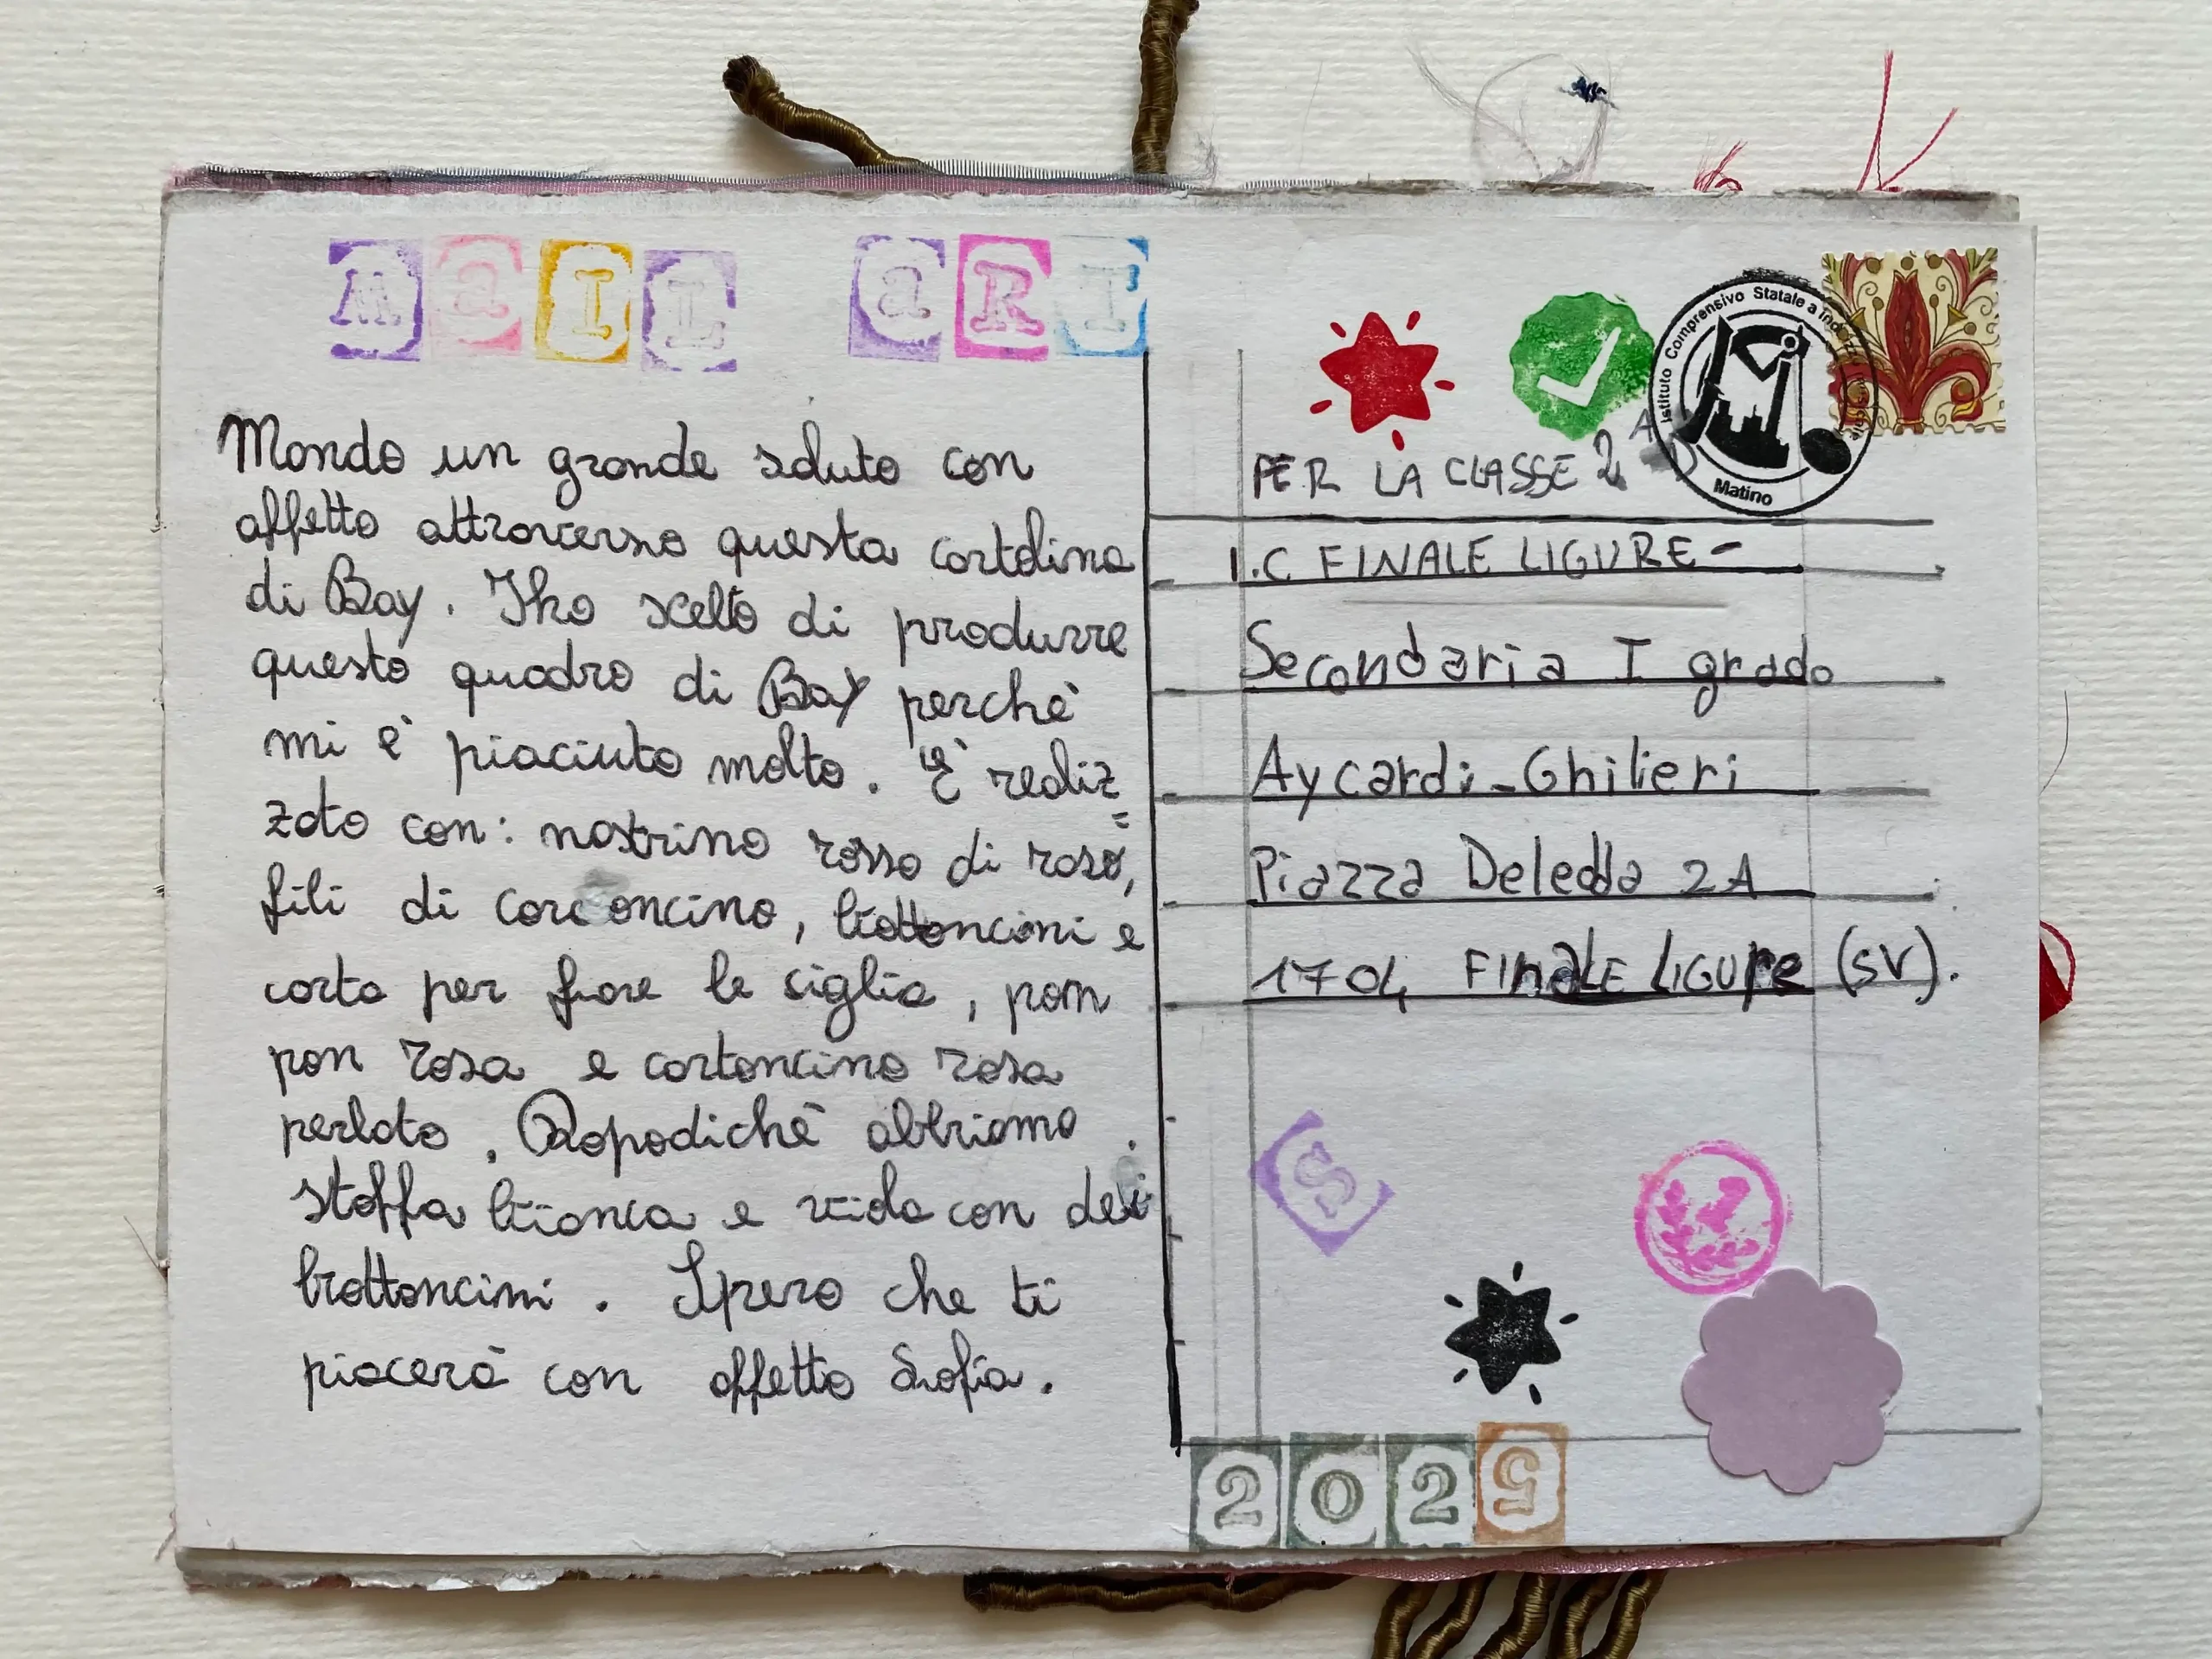 MaIL aRT
Mondo un grande saluto con
affetto attraverso questa cartolina
di Bay. Iho scelto di produrre
questo quadro di Bay perchè
mi è piaciuto molto. È realiz=
zato con: nastrino rosso di raso,
fili di cordoncino, bottoncini e
carta per fiore le siglia, pom
pon rosa e cartoncino rosa
perlato. Dopodichè abbiamo
stoffa bianca e viola con dei
bottoncini. Spero che ti
piacerà con affetto Sofia.
Istituto Comprensivo Statale a Ind
Matino
PER LA CLASSE 2 A D
I.C FINALE LIGURE-
Secondaria I grado
Aycardi-Ghilieri
Piazza Deledda 2A
1704 FINALE LIGUre (SV).
S
2025